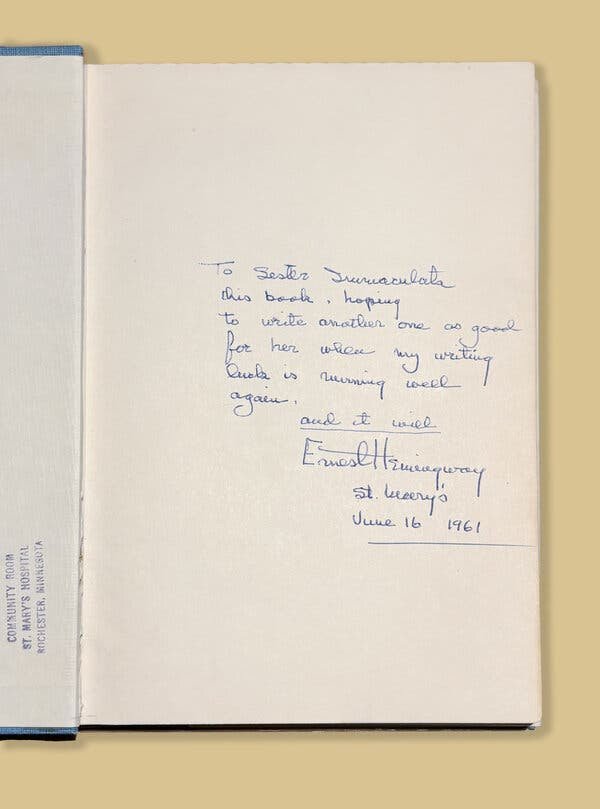 To Sister Immaculata
this book, hoping
to write another one as good
for her when my writing
luck is running well
again.
and it will
Ernest Hemingway
St. Mary's
June 16 1961
COMMUNITY ROOM
ST. MARY'S HOSPITAL
ROCHESTER, MINNESOTA